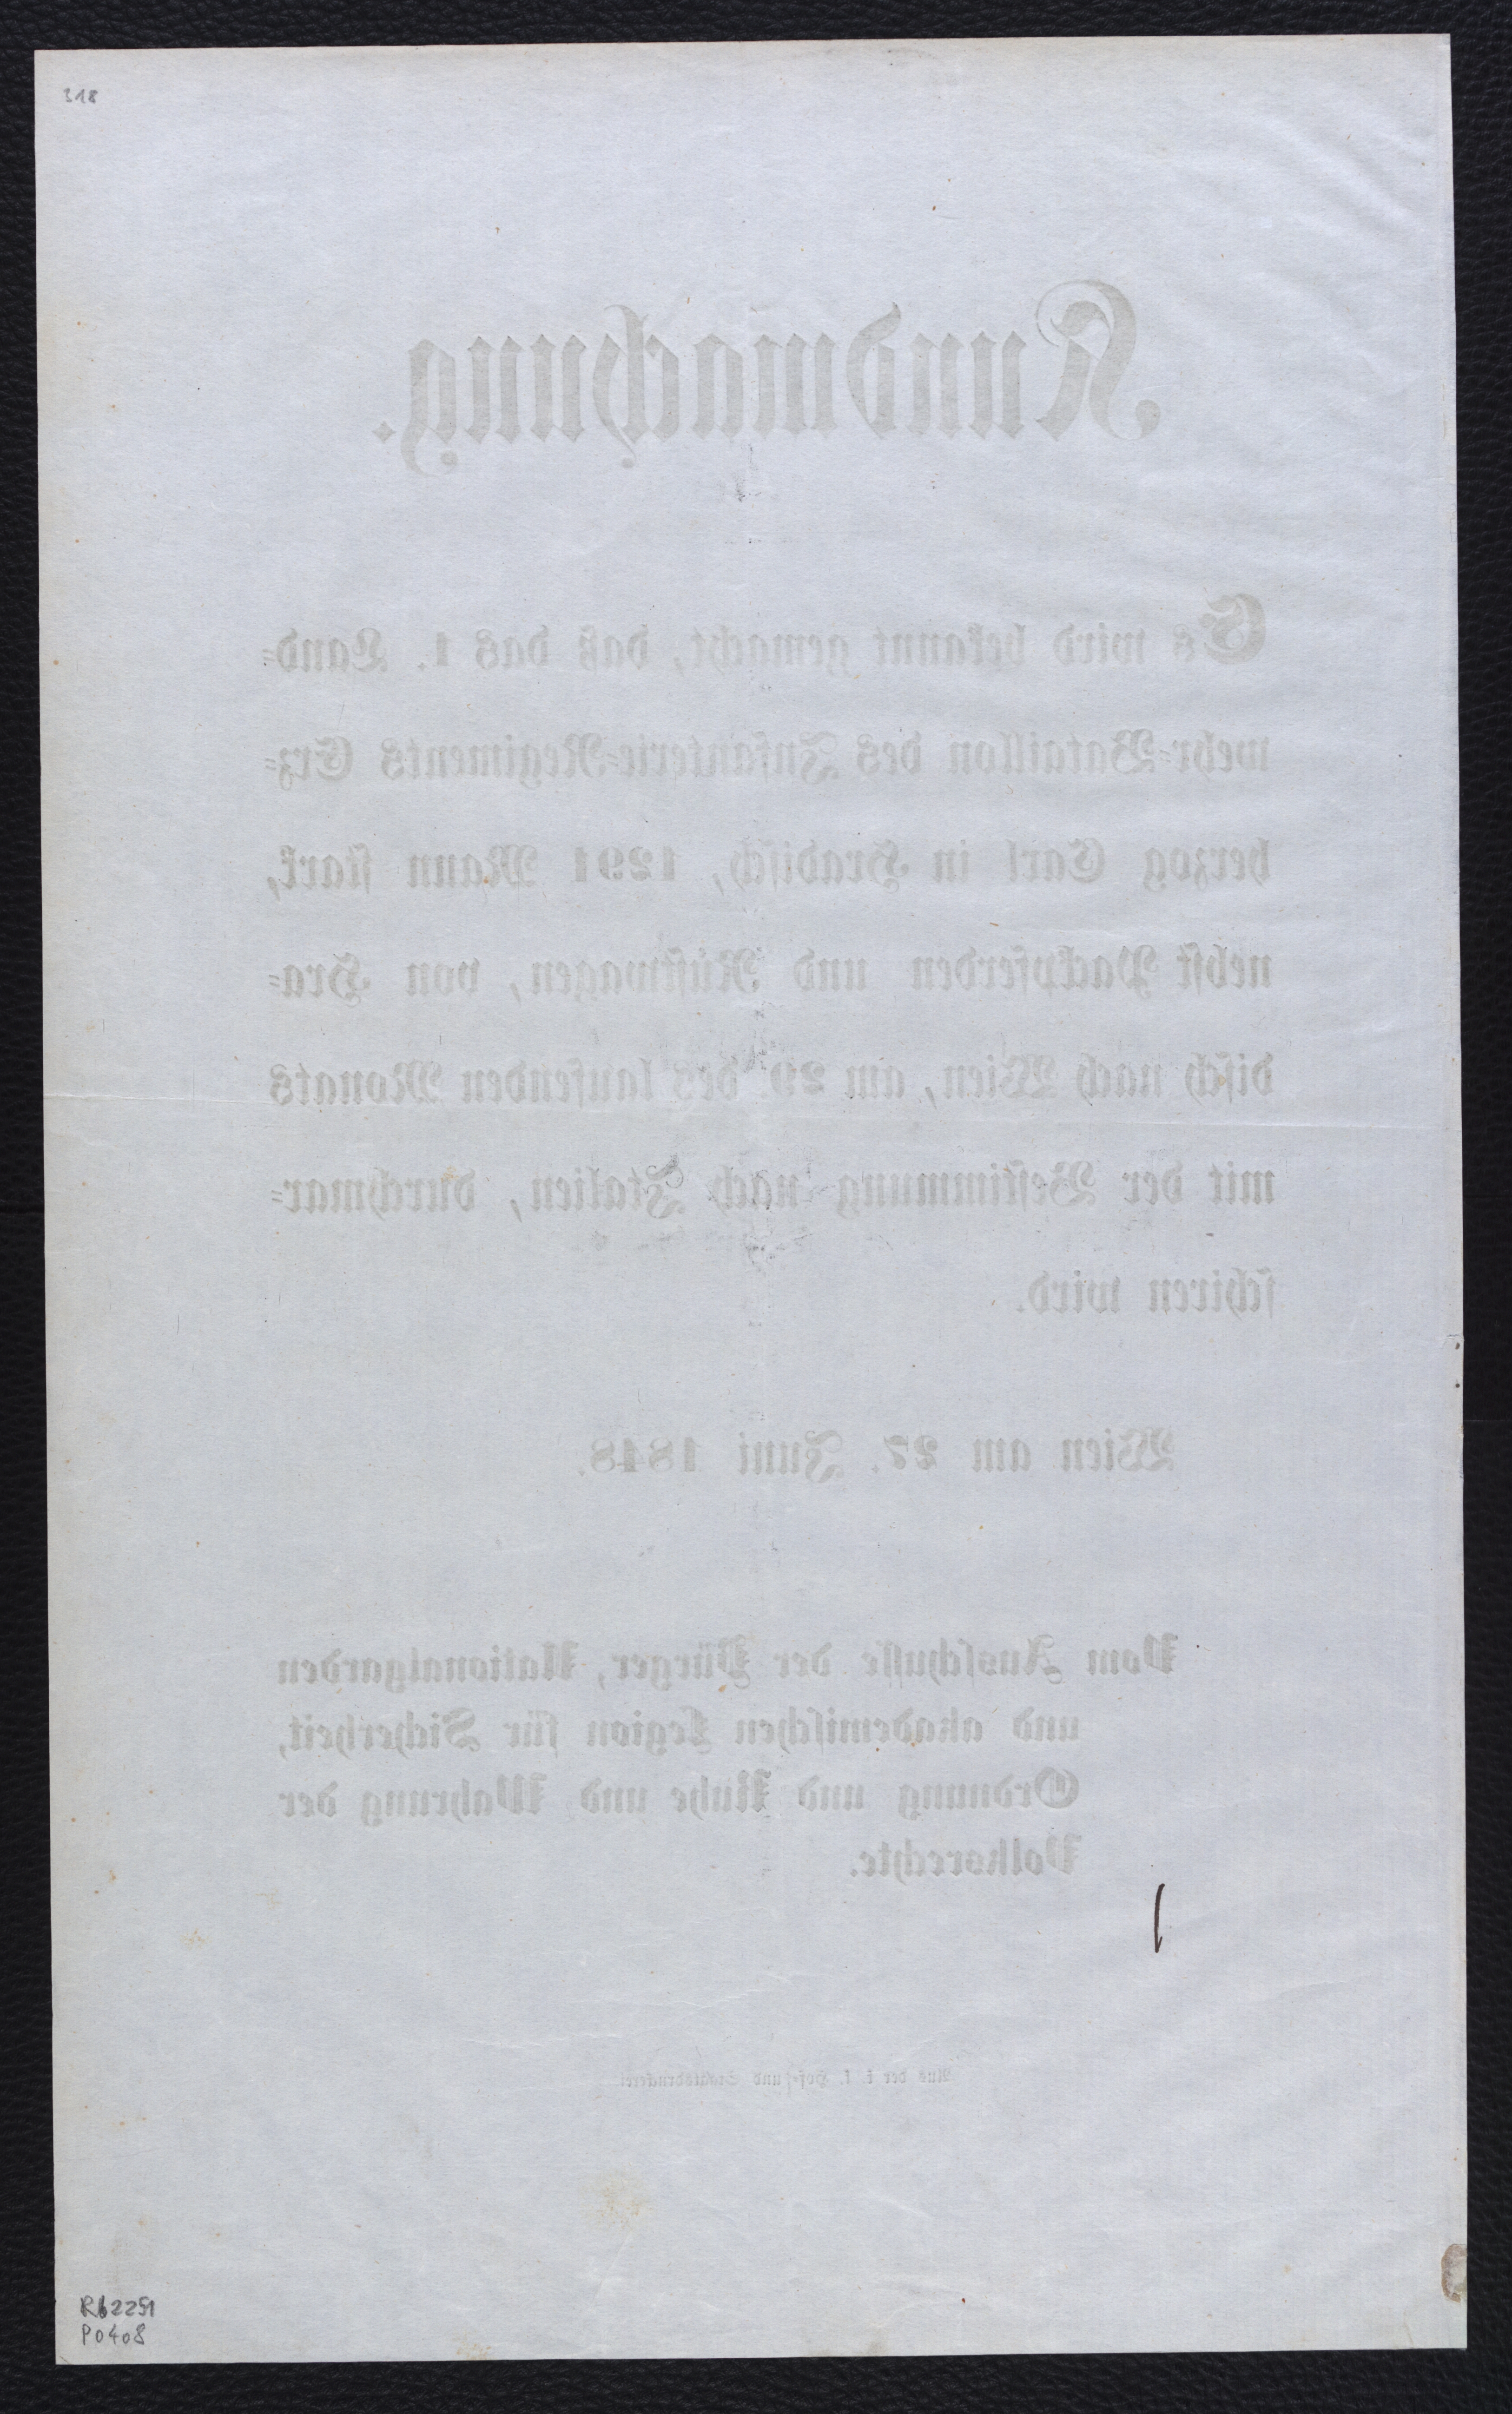 318
Kundmachung.
Es wird bekannt gemacht, daß das 1. Land-
wehr-Bataillon des Infanterie-Regiments Erz-
herzog Carl in Hradisch, 1291 Mann stark,
nebst Packpferden und Rüstwagen, von Hra-
disch nach Wien, am 29. des laufenden Monats
mit der Bestimmung nach Italien, durchmar-
schiren wird.
Wien am 27. Juni 1848.
Vom Ausschusse der Bürger, Nationalgarden
und akademischen Legion für Sicherheit,
Ordnung und Ruhe und Wahrung der
Volksrechte.
Aus der k. k. Hof- und Staatsdruckerei.
Rb2251
P0408